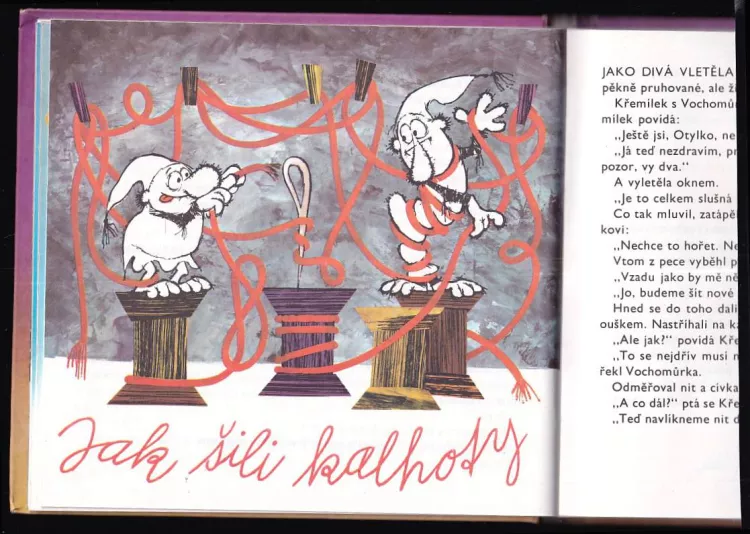 Jak šili kalhoty
JAKO DIVÁ VLETĚLA
pěkně pruhované, ale
Křemílek s Vochomů
mílek povídá:
„Ještě jsi, Otylko, ne
„Já teď nezdravím,
pozor, vy dva."
A vyletěla oknem.
„Je to celkem slušná
Co tak mluvil,
kovi:
„Nechce to hořet.
Vtom z pece vyběhl
„Vzadu jako by mě
„Jo, budeme šít nové
Hned se do toho dali
ouškem. Nastříhali na
„Ale jak?" povídá
„To se nejdřív musí
řekl Vochomůrka.
Odměřoval nit a cívka
„A co dál?" ptá se
„Teď navlíkneme nit